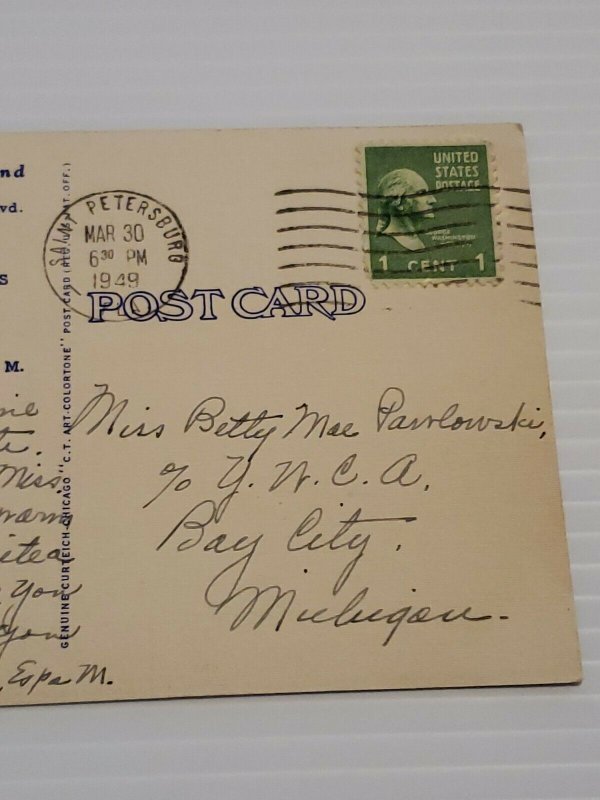 nd
vd.
s
M.
Miss.
warm
you
you
Espa M.
GENUINE CURTEICH-CHICAGO "C.T. ART-COLORTONE" POST CARD (REG. U.S. PAT. OFF.)
SAINT PETERSBURG
MAR 30
6 30 PM
1949
UNITED
STATES
POSTAGE
GEORGE
WASHINGTON
1 CENT 1
POST CARD
Miss Betty Mae Pawlowski,
c/o Y. W. C. A.
Bay City.
Michigan.